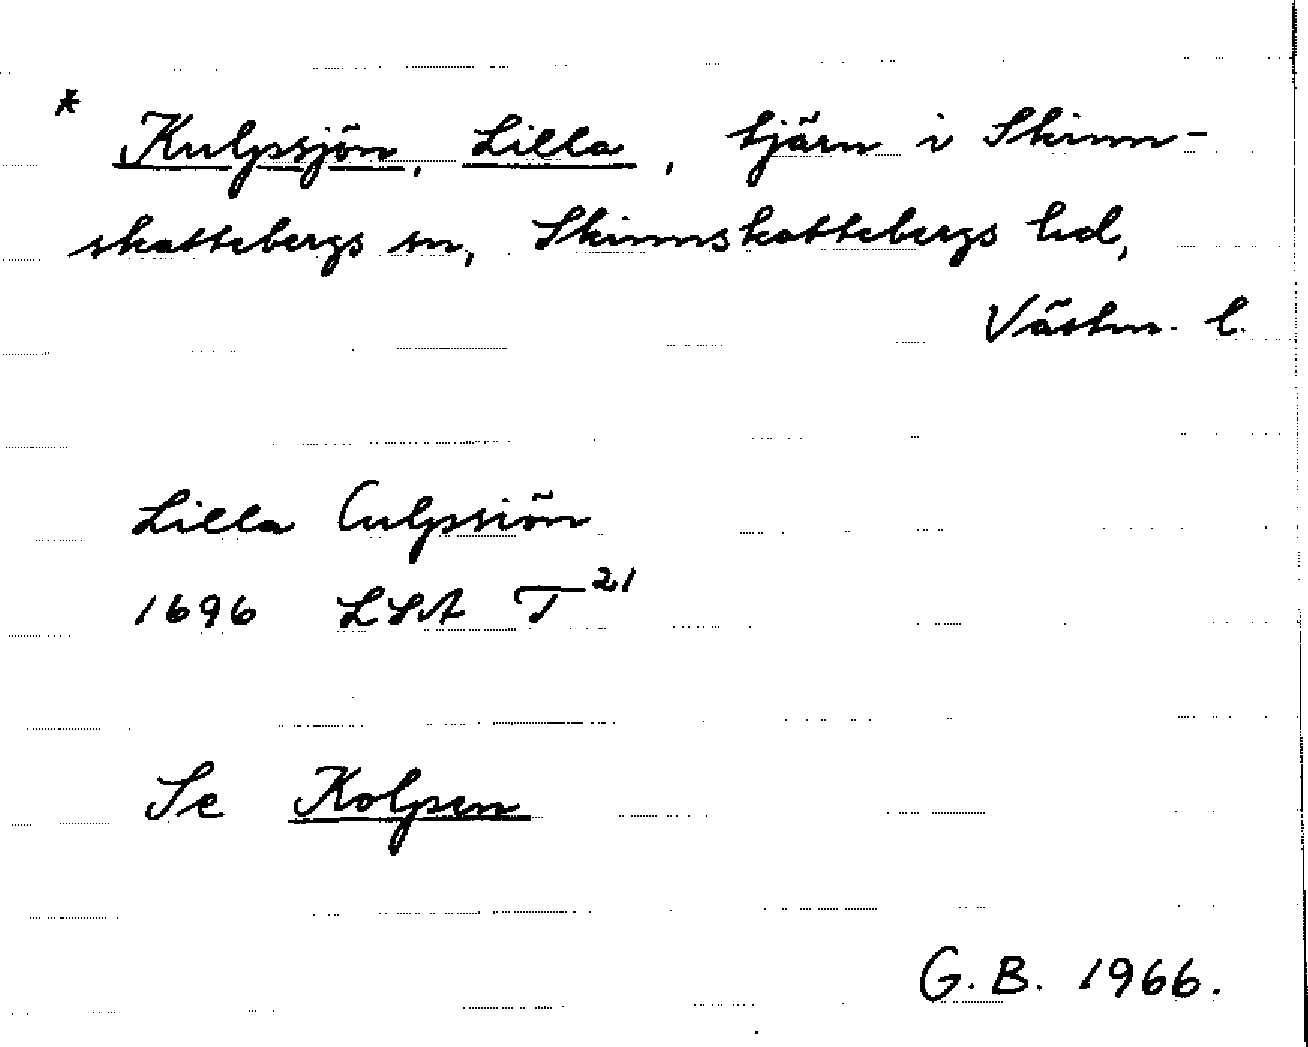 * Kulpsjön, Lilla, tjärn i Skinn-
skattebergs sn, Skinnskattebergs hd,
Västm. l.
Lilla Culpsiön
1696 LSA T21
Se Kolpen
G. B. 1966.